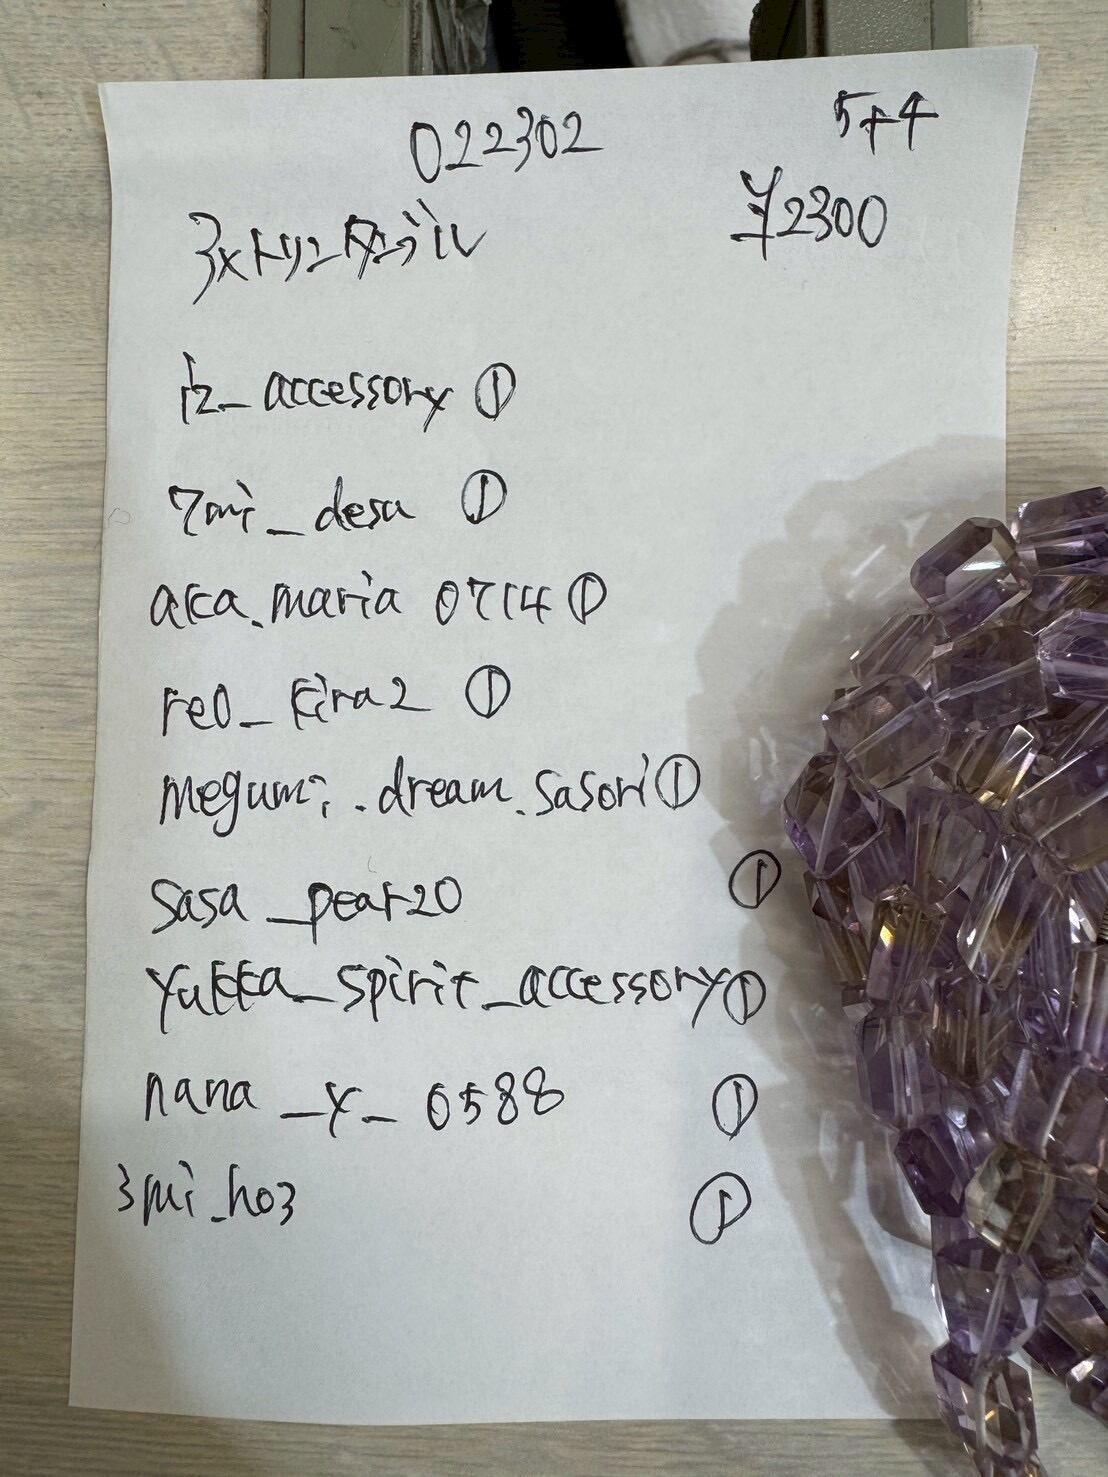 022302
5+4
¥2300
アメトリンタンブル
rz_accessory ①
7mi_desu ①
aka.maria 0714 ①
re0_kira2 ①
megumi.dream.sasori ①
sasa_pear20 ①
yukka_spirit_accessory ①
nana_y_0588 ①
3mi_ho3 ①